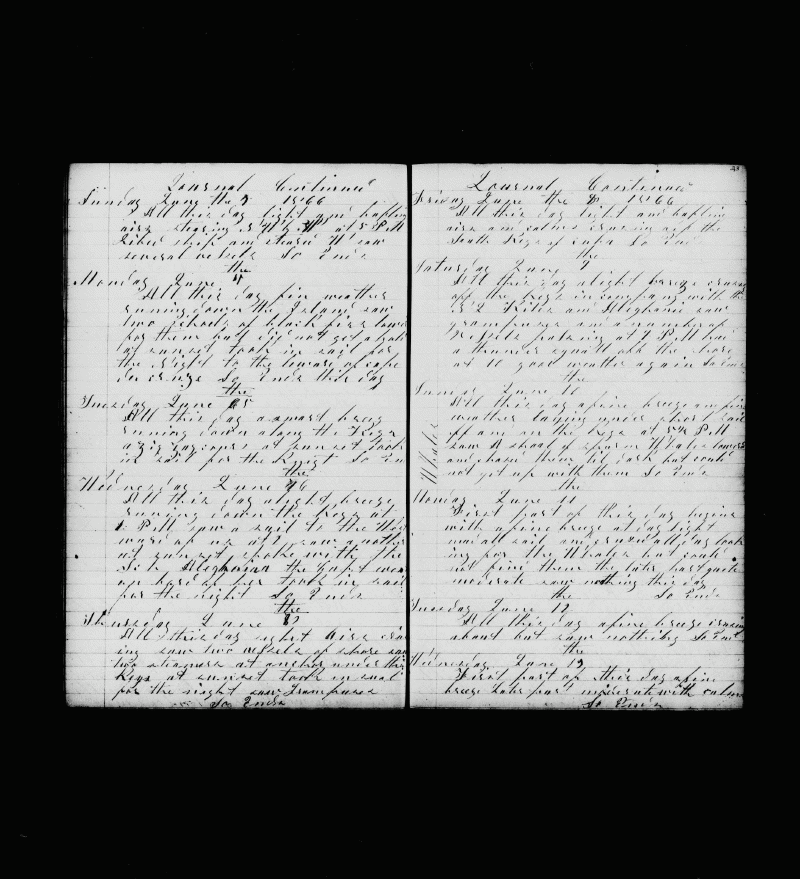 Journal Continued
Sunday June the 3 1866
All this day light and bafling
airs stearing N W by W at 5 P M
Kiled ship and steared W saw
several vessels So Ends
the
Monday June 4
All this day fine weather
running down the Island saw
two schools of black fish lowered
for them but did not get
at sunset took in sail for
the Night to the leward of cape
So Ends this day
the
Tuesday June 5
All this day a smart breeze
running down along the Keys
at sunset took
in sail for the Night So Ends
the
Wednesday June 6
All this day a light breeze
running down the Keys at
P M saw a sail to the
ward of us at 2 saw another
at sunset spoke with the
Sch Aleghania the Capt went
on board her took in sail
for the night So Ends
the
Thursday June 7
All this day light airs
ing saw two vessels of shore saw
two steamers at anchor under the
Keys at sunset took in sail
for the night saw Grampuses
So Ends
Journal Continued
Friday June the 8 1866
All this day light and bafling
airs and calms crusing off the
South Keys of cuba So Ends
the
Saturday June 9
All this day a light breeze crusing
off the Keys in company with the
and Aleghania saw
grampuses and a number of
Vessels pasing at 7 P M had
a thunder squall off the shore
at 10 good weather again So Ends
the
Sunday June 10
All this day a fine breeze and fine
weather laying under short sail
off and on the Keys at P M
saw A shoal of sperm Whales lowered
and chased them til dark but could
not get up with them So Ends
Whales
the
Monday June 11
First part of this day begins
with a fine breeze at day light
mad all sail and crused all day look
ing for the Whales but could
not find them the later part quite
moderate saw nothing this day
the So Ends
Tuesday June 12
All this day a fine breeze crusing
about but saw nothing So Ends
the
Wednesday June 13
First part of this day a fine
breeze Later part moderate with calms
So Ends